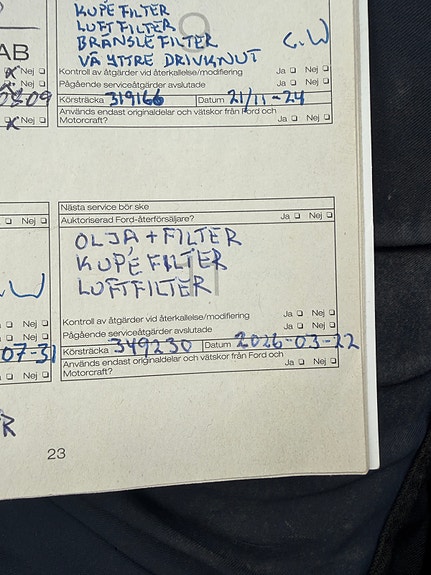 KUPEFILTER
LUFTFILTER
BRÄNSLEFILTER
VÄ YTTRE DRIVKNUT
C.W
AB
Nej
Kontroll av åtgärder vid återkallelse/modifiering Ja Nej
Nej
Pågående serviceåtgärder avslutade Ja Nej
Körsträcka 319166 Datum 21/11-24
Nej
Används endast originaldelar och vätskor från Ford och Motorcraft? Ja Nej
Nästa service bör ske
Nej
Auktoriserad Ford-återförsäljare? Ja Nej
OLJA + FILTER
KUPÉFILTER
LUFTFILTER
11
Nej
Kontroll av åtgärder vid återkallelse/modifiering Ja Nej
Nej
Pågående serviceåtgärder avslutade Ja Nej
07-31
Körsträcka 349230 Datum 2026-03-22
Nej
Används endast originaldelar och vätskor från Ford och Motorcraft? Ja Nej
23